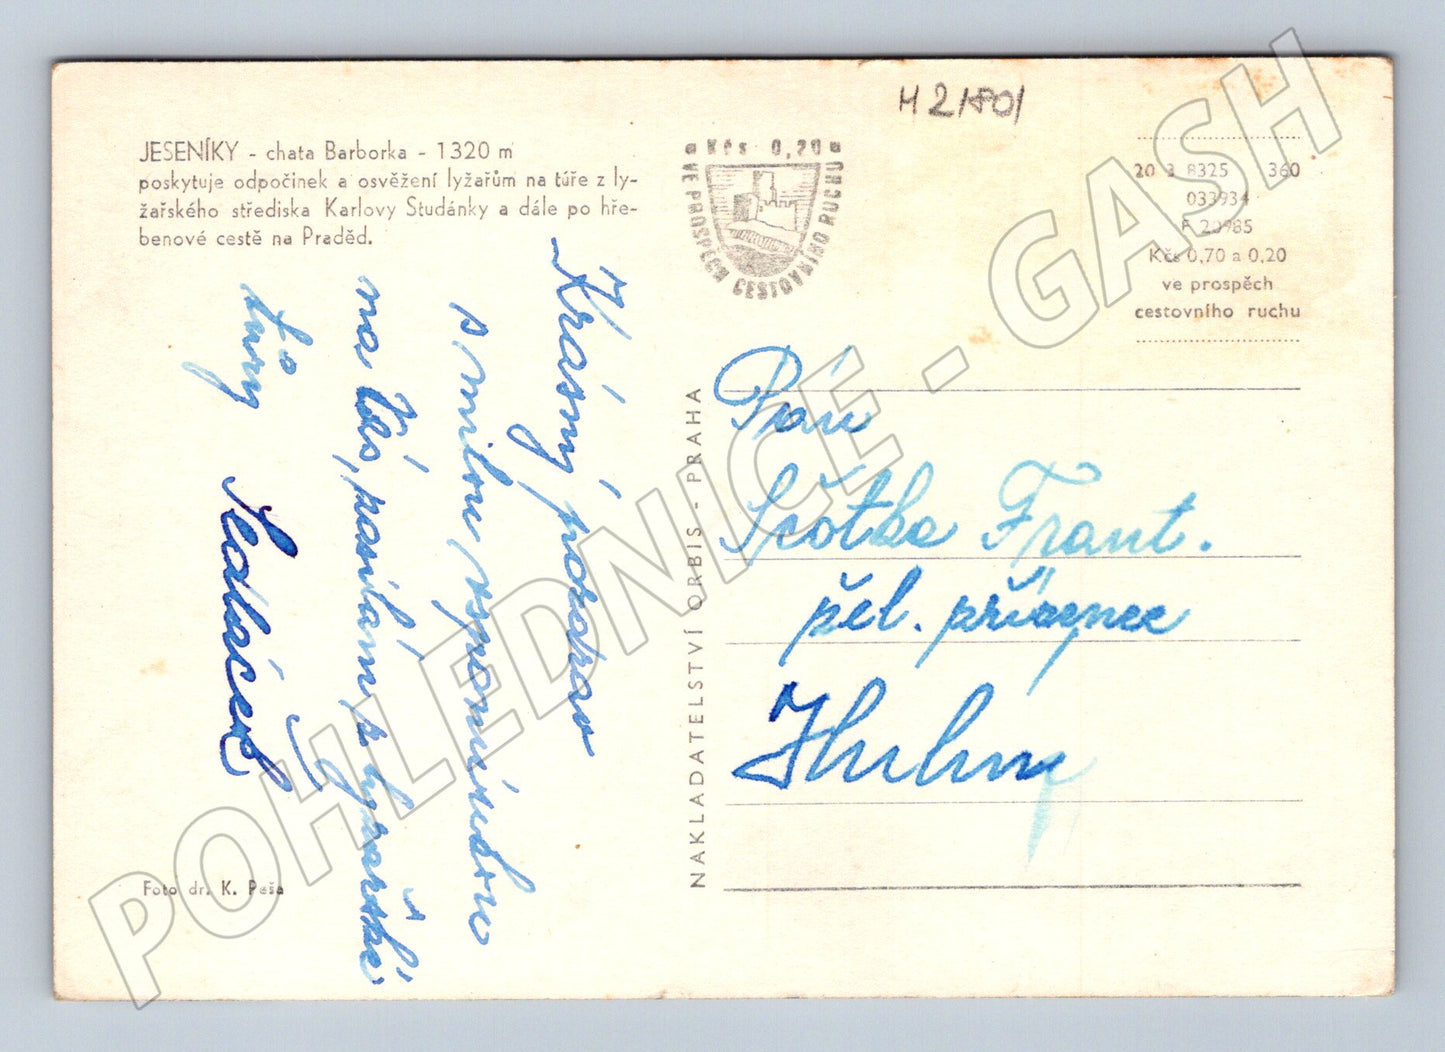 H 21801
JESENÍKY - chata Barborka - 1320 m
poskytuje odpočinek a osvěžení lyžařům na túře z ly-
žařského střediska Karlovy Studánky a dále po hře-
benové cestě na Praděd.
Kčs 0,20
VE PROSPĚCH CESTOVNÍHO RUCHU
20 3 8325 360
033934
F 20985
Kčs 0,70 a 0,20
ve prospěch
cestovního ruchu
Krásný pozdrav
s milou vzpomínkou
na Vás, posílám z lyžařské
túry
Sedláček
NAKLADATELSTVÍ ORBIS - PRAHA
Pan
Frant.
Foto dr. K. Peša
POHLEDNICE - GASH